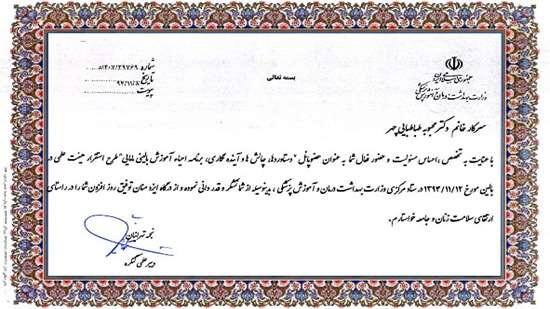 جمهوری اسلامی ایران
وزارت بهداشت، درمان و آموزش پزشکی
بسمه تعالی
شماره
تاریخ
پیوست
سرکار خانم دکتر محبوبه طباطبایی چهر
با عنایت به تخصص، احساس مسئولیت و حضور فعال شما به عنوان عضو پانل "دستاوردها، چالش ها و آینده نگاری، برنامه احیاء آموزش بالینی مامایی" طرح استقرار هیئت علمی در
بالین مورخ ۱۳۹۳/۱۱/۱۲ در ستاد مرکزی وزارت بهداشت درمان و آموزش پزشکی، بدینوسیله از شما تشکر و قدردانی نموده و از درگاه ایزد منان توفیق روز افزون شما را در راستای
ارتقای سلامت زنان و جامعه خواستارم.
نجمه تهرانیان
دبیر علمی کنگره